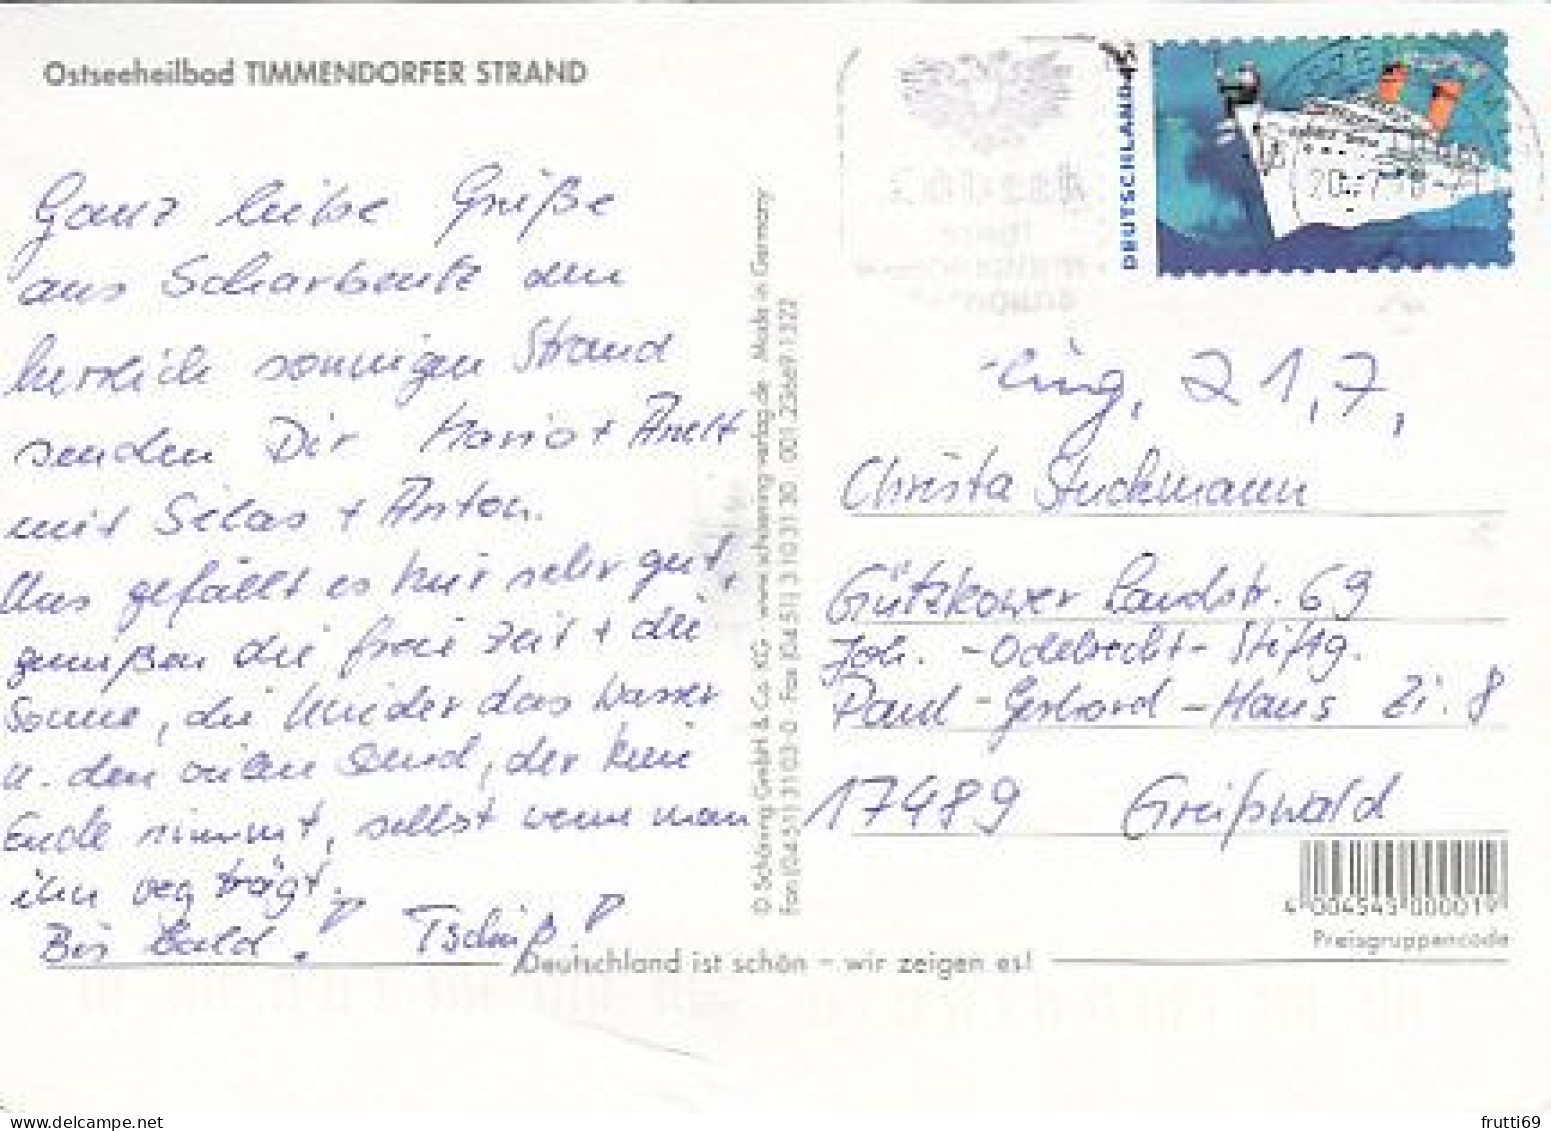 Ostseeheilbad TIMMENDORFER STRAND
Ganz liebe Grüße
aus Scharbeutz den
herrlich sonnigen Strand
senden Dir Mario + Anett
mit Silas + Anton.
Uns gefällt es hier sehr gut,
genießen die freie Zeit + die
Sonne, die Kinder das Wasser
u. den vielen Sand, der kein
Ende nimmt, selbst wenn man
ihn weg trägt.
Bis bald! Tschüß!
© Schöning GmbH & Co. KG · www.schoening-verlag.de · Made in Germany
Fon (0451) 31 03-0 · Fax (0451) 3 10 31 30 · 001.23669.1322
DEUTSCHLAND 45
20.7.
Eing. 21.7.
Christa Stuckmann
Gützkower Landstr. 69
Joh. -Odebrecht-Stiftg.
Paul-Gerhard-Haus Zi. 8
17489 Greifswald
4 004545 000019
Preisgruppencode
Deutschland ist schön – wir zeigen es!
frutti69